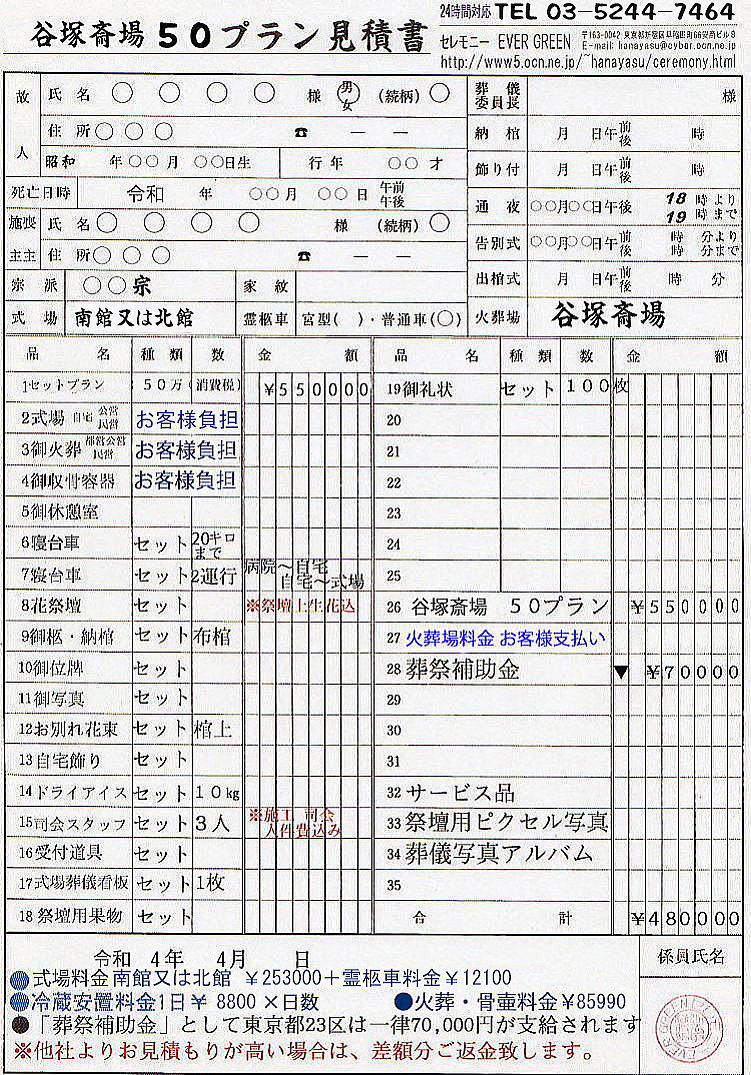 谷塚斎場 50プラン見積書
24時間対応 TEL 03-5244-7464
セレモニー EVER GREEN
〒163-0042 東京都新宿区早稲田町66安商ビル8
E-mail: hanayasu@cybar.ocn.ne.jp
http://www5.ocn.ne.jp/~hanayasu/ceremony.html
故人 氏名 ○ ○ ○ ○ 様 男女 (続柄) ○
住所○○○ ☎ ー ー
昭和 年○○月 ○○日生 行年 ○○才
死亡日時 令和 年 ○○月 ○○日 午前 午後
施主 喪主 氏名○ ○ ○ ○ 様 (続柄) ○
住所○○○ ☎ ー ー
宗派 ○○宗 家紋
式場 南館又は北館 霊柩車 宮型( )・普通車(○)
葬儀委員長 様
納棺 月 日午前後 時
飾り付 月 日午前後 時
通夜 ○○月○○日午後 18時より 19時まで
告別式 ○○月○○日午前後 時 分より 時 分まで
出棺式 月 日午前後 時 分
火葬場 谷塚斎場
品名 種類 数 金額
1セットプラン 50万(消費税) ¥550000
2式場 自宅 公営 民営 お客様負担
3御火葬 都営公営 民営 お客様負担
4御収骨容器 お客様負担
5御休憩室
6寝台車 セット 20キロまで
7寝台車 セット 2運行 病院〜自宅 自宅〜式場
8花祭壇 セット ※祭壇上生花込
9御柩・納棺 セット 布棺
10御位牌 セット
11御写真 セット
12お別れ花束 セット 棺上
13自宅飾り セット
14ドライアイス セット 10kg
15司会スタッフ セット 3人 ※施工 司会 人件費込み
16受付道具 セット
17式場葬儀看板 セット 1枚
18祭壇用果物 セット
品名 種類 数 金額
19御礼状 セット 100枚
20
21
22
23
24
25
26 谷塚斎場 50プラン ¥550000
27 火葬場料金 お客様支払い
28 葬祭補助金 ▼ ¥70000
29
30
31
32 サービス品
33 祭壇用ピクセル写真
34 葬儀写真アルバム
35
合計 ¥480000
令和 4年 4月 日
係員氏名
●式場料金南館又は北館 ¥253000+霊柩車料金¥12100
●冷蔵安置料金1日¥ 8800×日数 ●火葬・骨壷料金¥85990
●「葬祭補助金」として東京都23区は一律70,000円が支給されます
※他社よりお見積もりが高い場合は、差額分ご返金致します。